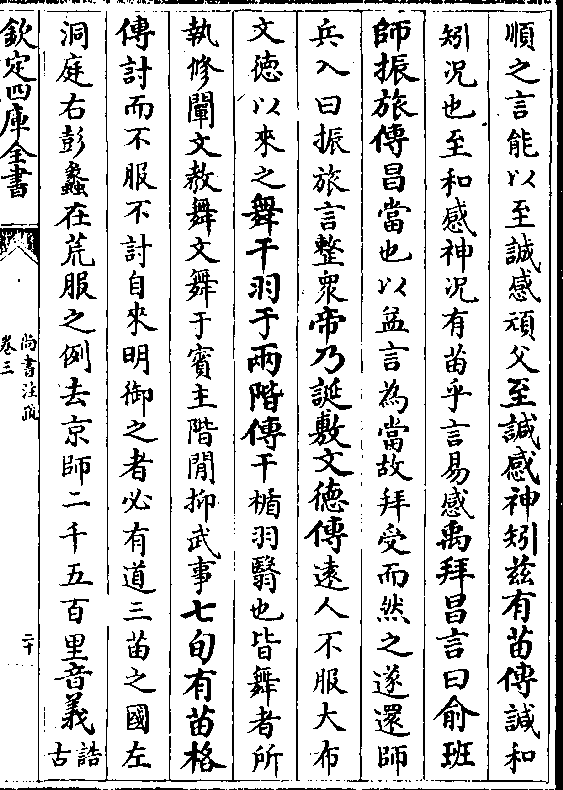 順之言能以至誠感頑父至諴感神矧茲有苗傳諴和
矧況也至和感神況有苗乎言易感禹拜昌言曰俞班
師振旅傳昌當也以益言為當故拜受而然之遂還師
兵入曰振旅言整衆帝乃誕敷文德傳遠人不服大布
文德以來之舞干羽于兩階傳干楯羽翳也皆舞者所
執修闡文教舞文舞于賓主階閒抑武事七旬有苗格
傳討而不服不討自來明御之者必有道三苗之國左
洞庭右彭蠡在荒服之例去京師二千五百里音義誥
古
欽定四庫全書
尚書注疏
卷三
二十